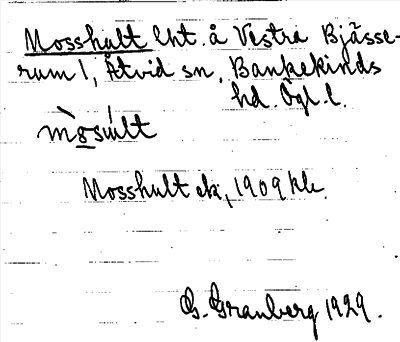 Mosshult lht. å Västra Bjässe-
rum 1, Åtvid sn, Bankekinds
hd. Ögl. l.
Mosshult ek, 1909 kk.
G. Granberg 1929.